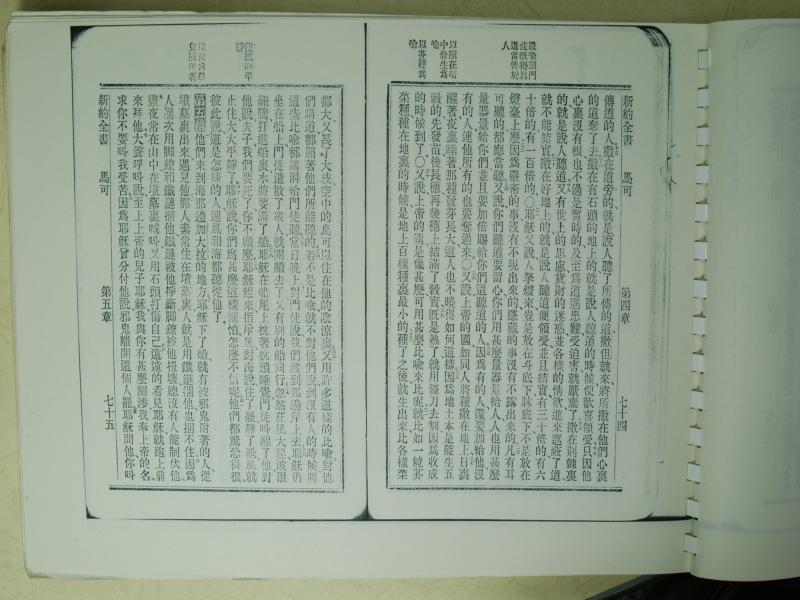 新約全書
馬可
第四章
七十四
傳道的人撒在道旁的、就是說人聽了所傳的道、撒但就來、將所撒在他們心裏
的道奪了去、撒在有石頭的地上的、就是說人聽道的時候、便歡喜領受、只因他
心裏沒有根、也不過是暫時的、及至為道遇患難、受迫害、就厭棄了、撒在荊棘裏
的、就是說人聽道、又有世上的思慮、貨財的迷惑、並各樣的情欲進來、遮蔽了道、
就不能結實、撒在好地上的、就是說人聽道便領受、並且結實、有三十倍的、有六
十倍的、有一百倍的、○耶穌又說、人拏燈來、豈是放在斗底下、牀底下、不是放在
燈臺上麼、因為嚴密的事、沒有不現出來的、隱藏的事、沒有不露出來的、凡有耳
可聽的、都應當聽、又說你們聽道要留心、你們用甚麼量器量給人、人也用甚麼
量器量給你們、並且要加倍賜給你們這聽道的人、因為有的人、還要加給他、沒
有的人、連他所有的、也要奪過來、○又說、上帝的國、如同人將種撒在地上、日裏
醒著、夜裏睡著、那種發芽長大、這人也不曉得如何這樣、因為地土本是能生五
穀的、先發苗、後長穗、再後穗上結滿了穀實、旣是熟了、就用鐮刀去割、因為收成
的時候到了、○又說、上帝的國、是像甚麼、可用甚麼比喩來比呢、就比如一粒芥
菜種、種在地裏的時候、是地上百樣種裏最小的、種了之後、就生出來、比各樣菜
以芥種為
喩
新約全書
馬可
第五章
七十五
都大、又長了大枝、空中的鳥、可以住在他的陰涼裏、又用許多這樣的比喩、對他
們講道、都照著他們所能聽的、若不是比喩、就不對他們說、到沒有人的時候、將
這些比喩、都講解給門徒聽、當日晚上、對門徒說、我們渡到那邊岸上去、耶穌仍
坐在船上、門徒遣散了衆人、就開船去了、又有別的船同行、忽然狂風大起、波浪
翻騰、打進船裏、水將要滿了船、耶穌在船尾上枕著枕頭睡覺、門徒叫醒了他、對
他說、夫子、我們要死了、你不顧麼、耶穌起來、指斥風、對海說、住了罷、靜了罷、風就
止住、大大平靜了、耶穌說、你們為甚麼這樣懼怕、怎麼不信呢、他們都驚恐得很、
彼此說、這是怎樣的人、連風和海都聽從他了、
第五章他們來到海那邊加大拉的地方、耶穌下了船、就有被邪鬼附著的人、從
墳墓裏出來遇見他、那人素常住在墳墓裏、人就是用鐵鏈捆他、也捆不住、因為
人屢次用腳鐐和鐵鏈捆他、鐵鏈被他掙斷、腳鐐被他扭壞、總沒有人能制伏他、
晝夜常在山中、在墳墓裏、喊叫、又用石頭打傷自己、遠遠的看見耶穌、就跑上前
來拜他、大聲呼叫說、至上上帝的兒子耶穌、我與你有甚麼關涉、我奉上帝的名、
求你不要叫我受苦、因為耶穌曾分付他說、邪鬼離開這個人罷、耶穌問他你叫